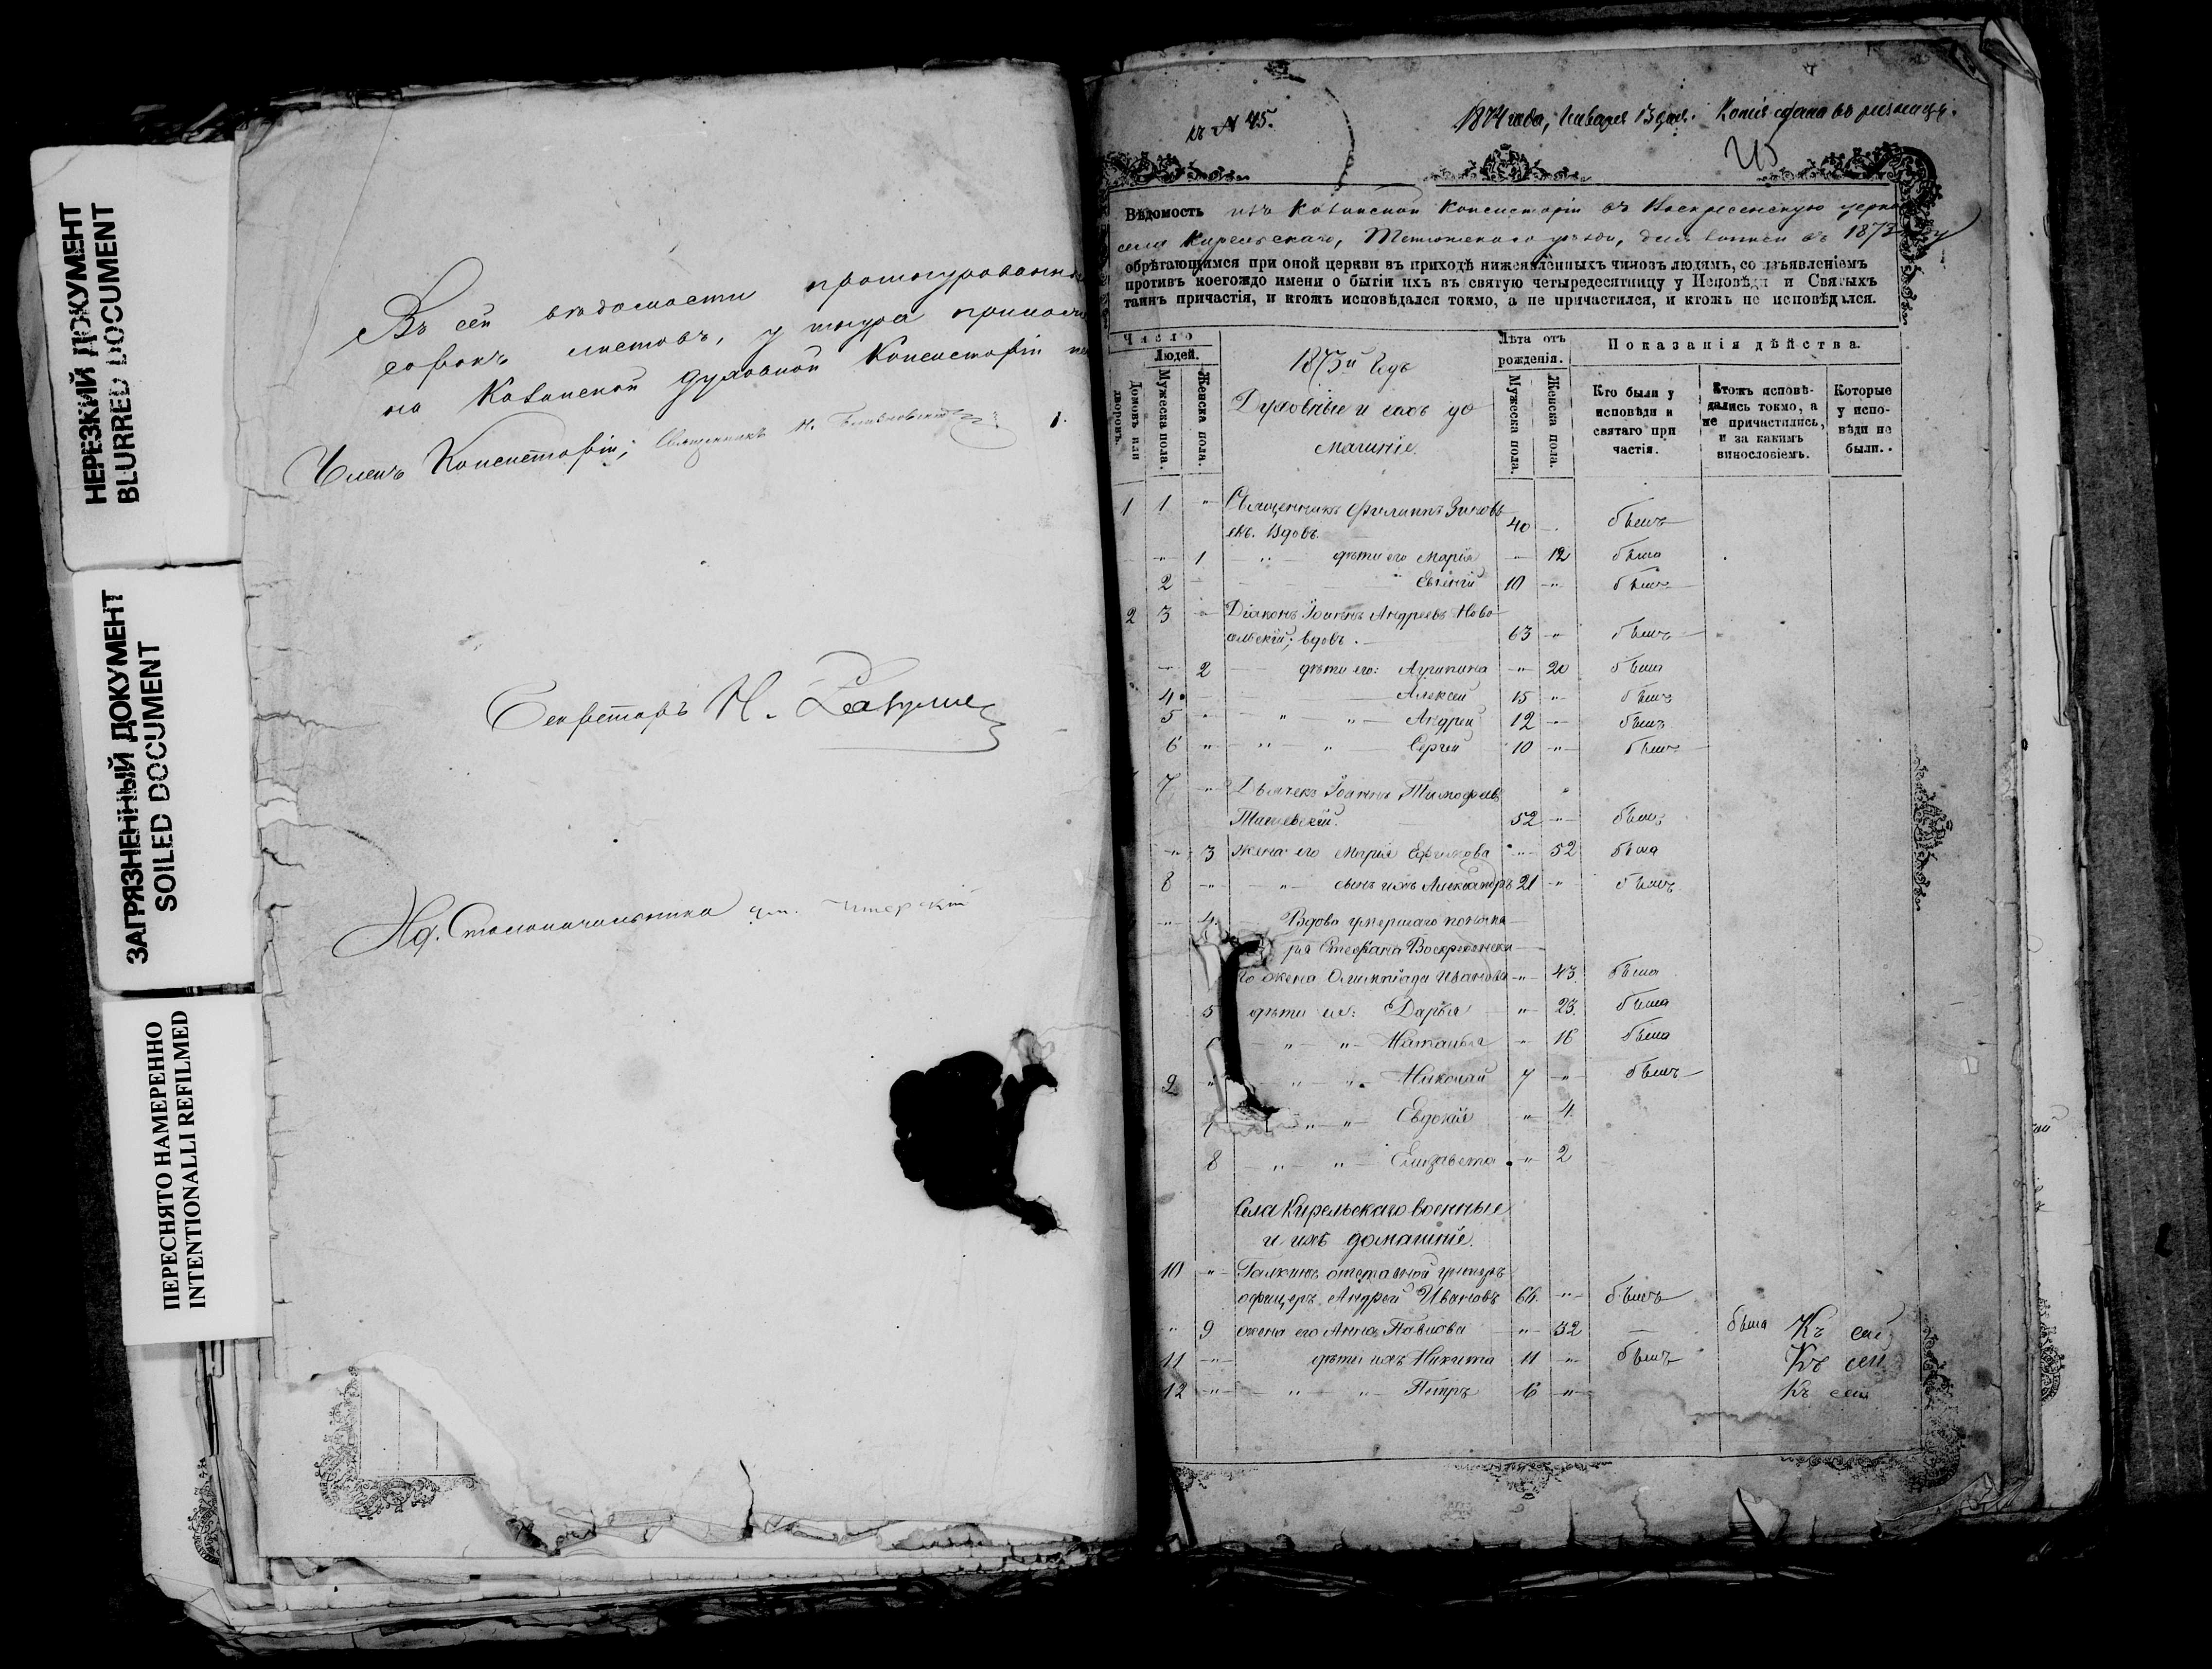 НЕРЕЗКИЙ ДОКУМЕНТ
BLURRED DOCUMENT
ЗАГРЯЗНЕННЫЙ ДОКУМЕНТ
SOILED DOCUMENT
ПЕРЕСНЯТО НАМЕРЕННО
INTENTIONALLI REFILMED
Въ сей ведомости прошнурованныхъ
сорокъ листовъ, у шнура
на Казанской Духовной Консисторіи
Членъ Консисторіи; Священникъ Н.
1.
Секретарь Н.
Столоначальника
къ N 45.
1874 года, Января 13 дня. Копія сдана въ ризницу.
45
Вѣдомость изъ Казанской Консисторіи въ Воскресенскую церковь
села Кирельскаго, Тетюшскаго уѣзда, для записи въ 1873
обрѣтающимся при оной церкви въ приходѣ нижеявлённыхъ чиновъ людямъ, со изъявленіемъ
противъ коегождо имени о бытіи ихъ въ святую четыредесятницу у Исповѣди и Святыхъ
таинъ причастія, и ктожъ исповѣдался токмо, а не причастился, и ктожъ не исповѣдался.
Число
Людей.
Домовъ или дворовъ.
Мужеска пола.
Женска пола.
1873й Годъ
Духовные и ихъ до
машніе.
Лѣта отъ рожденія.
Мужеска пола.
Женска пола.
Показанія дѣйства.
Кто были у исповѣди и святаго при частія.
Ктожъ исповѣ- дались токмо, а не причастились, и за какимъ винословіемъ.
Которые у испо- вѣди не были.
1 1 " Священникъ Филиппъ Зиновь
евъ. Вдовъ. 40 - былъ
" 1 дѣти его Марія " 12 была
2 Евгеній 10 " былъ
2 3 Діаконъ Іоаннъ Андреевъ Ново
ольскій; вдовъ. 63 " былъ
" 2 дѣти его: Агрипина " 20 была
4 Алексей 15 " былъ
5 " " " Андрей 12 " былъ
6 " " " Сергей 10 " былъ
7 " Дьячекъ Іоаннъ Тимофеевъ
52 " былъ
" 3 жена его Марія Ефимова " 52 была
8 " " сынъ ихъ Александръ 21 " былъ
" 4 Вдова умершаго понома
ря Стефана Воскресенска
го жена Олимпіада Иванова " 43 была
5 дѣти ея: Дарья " 23 была
" " Наталья " 16 была
9 " " " Николай 7 " былъ
7 " " Евдокія " 4
8 " " Елизавета " 2
Села Кирельскаго военные
и ихъ домашніе.
10 " Галкинъ отставной унтеръ
офицеръ Андрей Ивановъ 64 " былъ
" 9 жена его Анна Павлова " 32 — была Къ сей
11 " дѣти ихъ Никита 11 " былъ Къ сей
12 " " " Петръ 6 " Къ сей